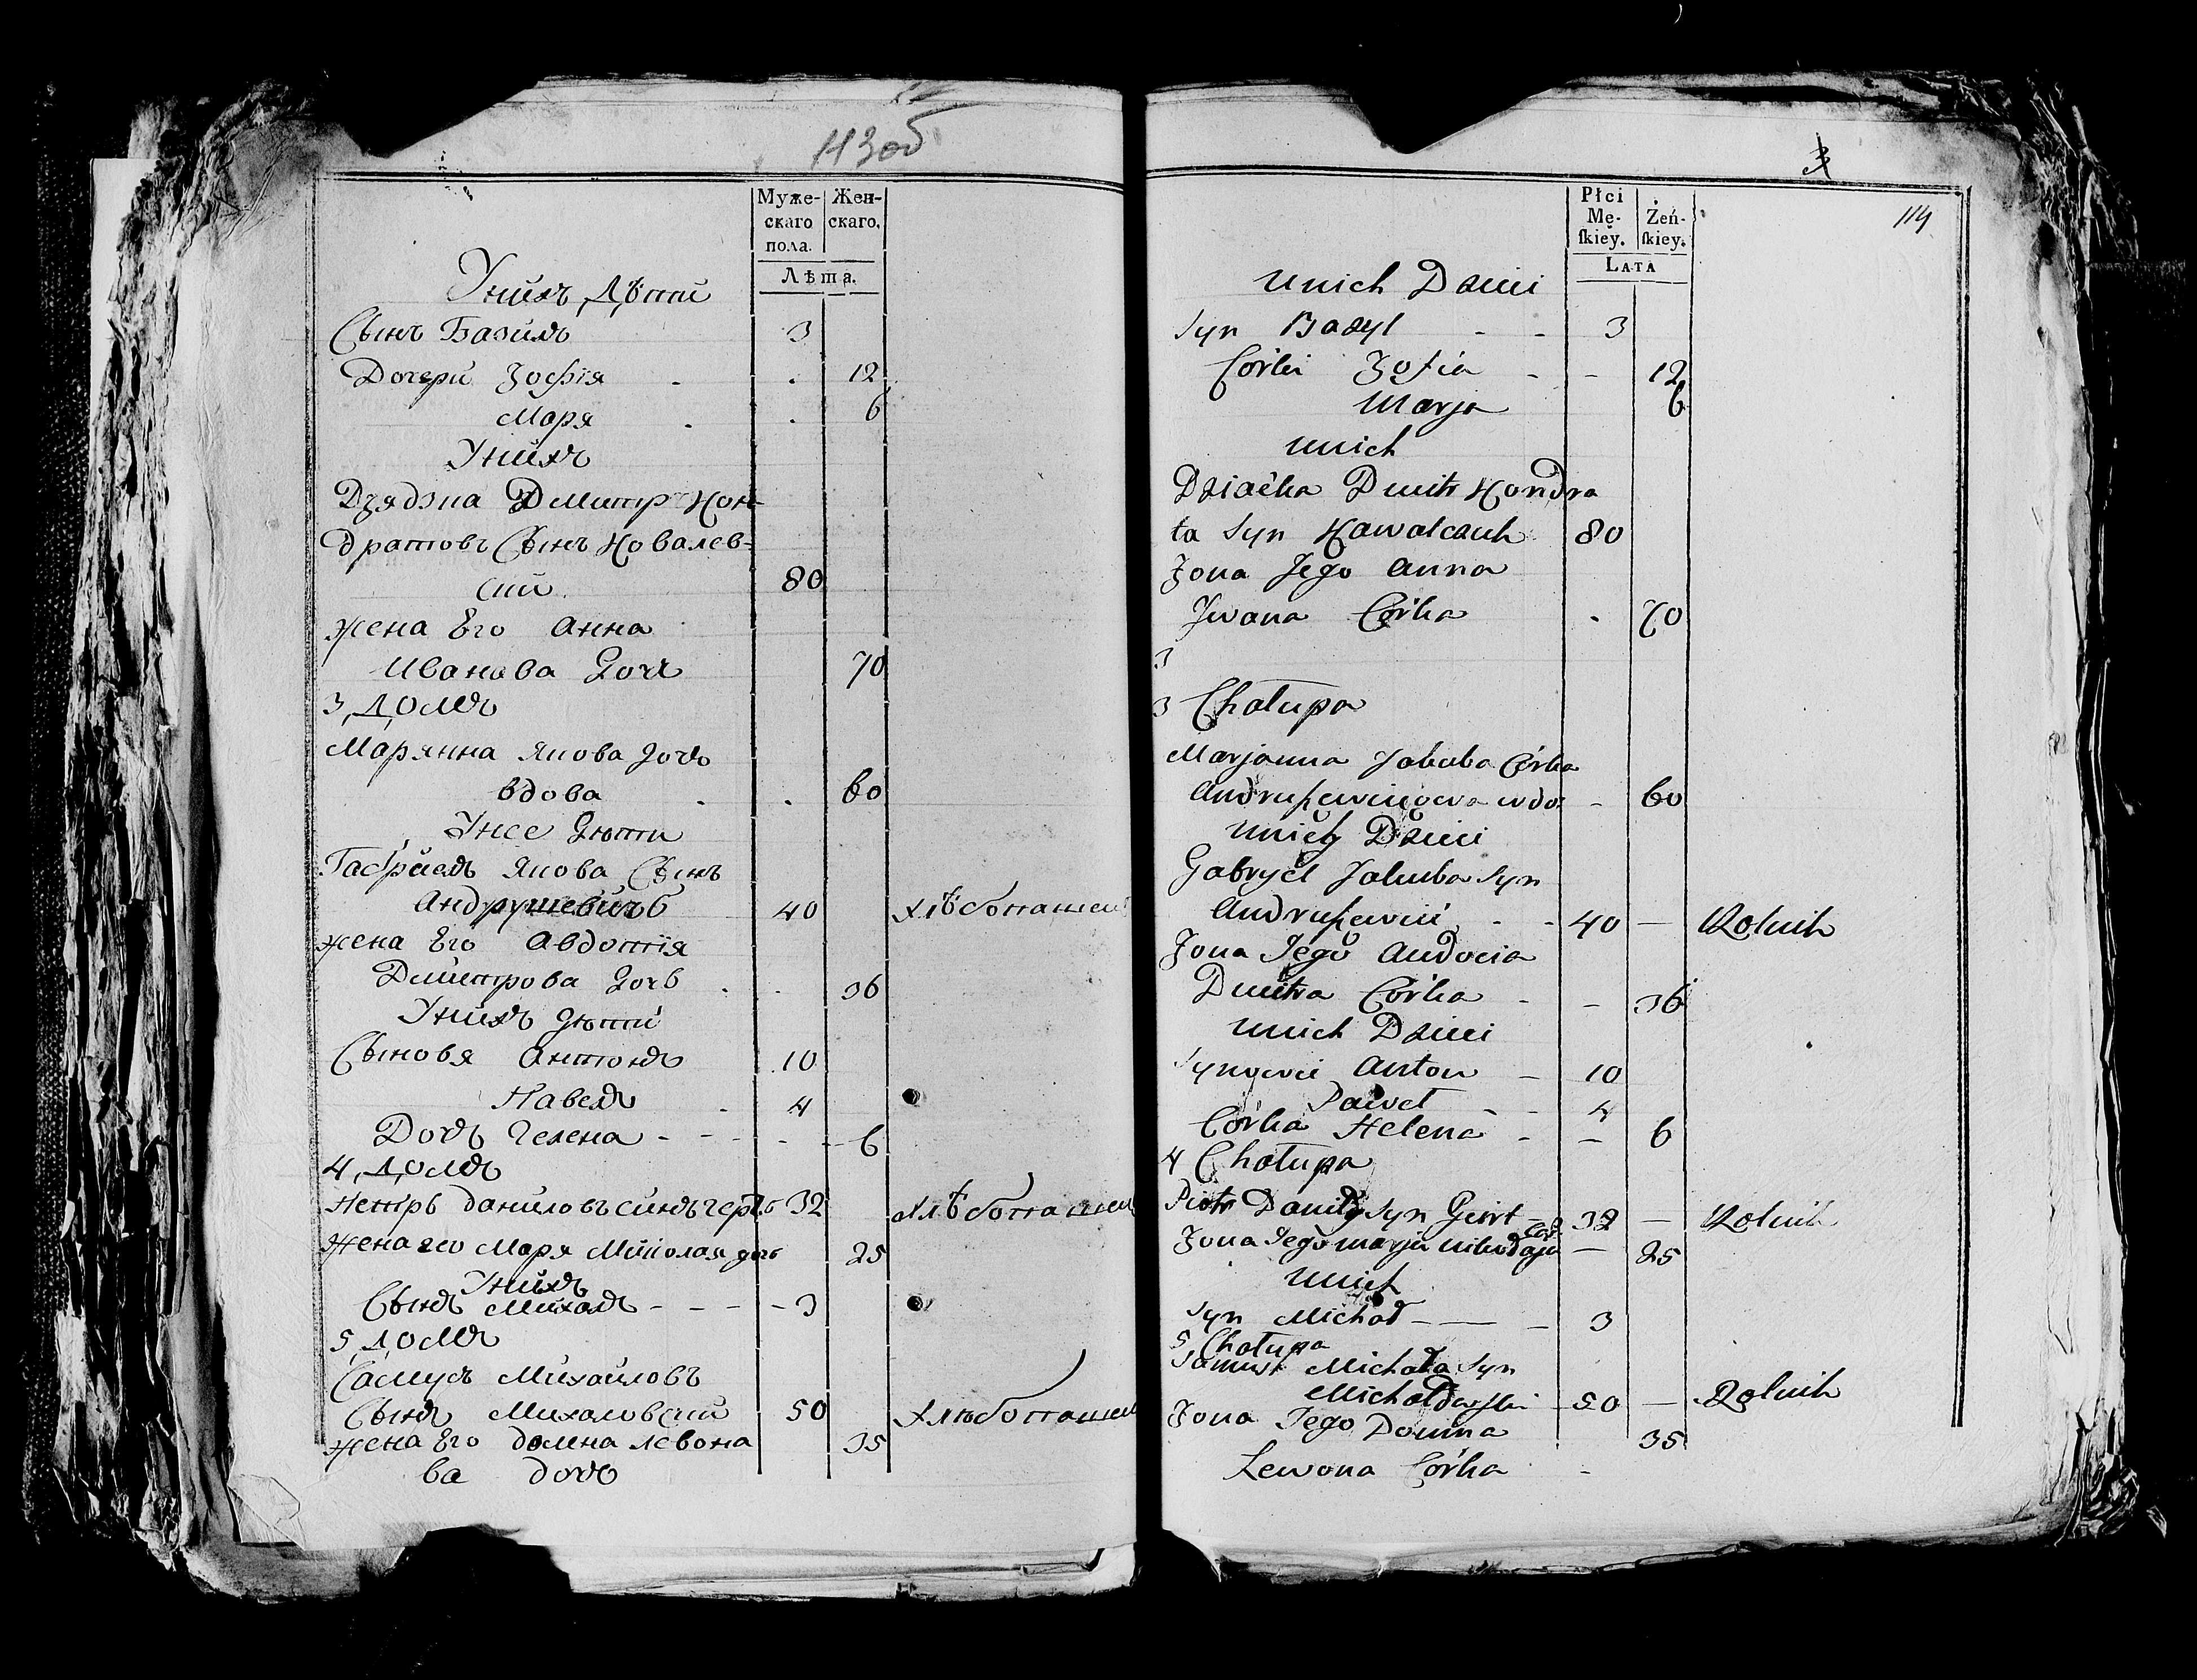 113об
Муже-
скаго
пола.
Жен-
скаго.
Лѣта.
Унихъ Дѣти
Сынъ Базиль 3
Дочери Зофія 12
Маря 6
Унихъ
Дзядзка Дмитръ Кон-
дратовъ Сынъ Ковалев-
ский 80
жена Его Анна
Иванова Дочь 70
3, Домъ
Марянна Якова дочь
вдова 60
Унее Дѣти
Габриель Якова Сынъ
Андрушевичъ 40 Хлѣбопашец
жена Его Авдотія
Дмитрова Дочь 36
Унихъ Дѣти
Сыновя Антонъ 10
Павелъ 4
Дочь Гелена 6
4, Домъ
Петръ Даниловъ синъ 32 Хлѣбопашец
Жена его Маря Миколая дочь 25
Унихъ
Сынъ Михалъ 3
5, Домъ
Самусь Михайловъ
Сынъ Михаловский 50 Хлѣбопашец
жена Его Домна Левона
ва дочь 35
114
Płci
Mę-
ſkiey.
Żeń-
ſkiey.
Lata
unich Dzieci
Syn Bazyl 3
Córki Zofia 12
Marja 6
unich
Dmitr Kondra
ta Syn Kowalczuk 80
Zona Jego Anna
Jwana Córka 70
3
3 Chałupa
Marjanna Jakuba Córka
Andruszewiczowa wdo: 60
Dzieci
Gabryel Jakuba Syn
Andruszewicz 40 Rolnik
Zona Jego Audocia
Dmitra Córka 36
unich Dzieci
Synowie Anton 10
Paweł 4
Córka Helena 6
4 Chałupa
Piotr Daniły Syn 32 Rolnik
Zona Jego Marja Cor 25
unich
Syn Michał 3
5 Chałupa
Samuś Michała Syn
Michałowski 50 Rolnik
Zona Jego Domna 35
Lewona Córka